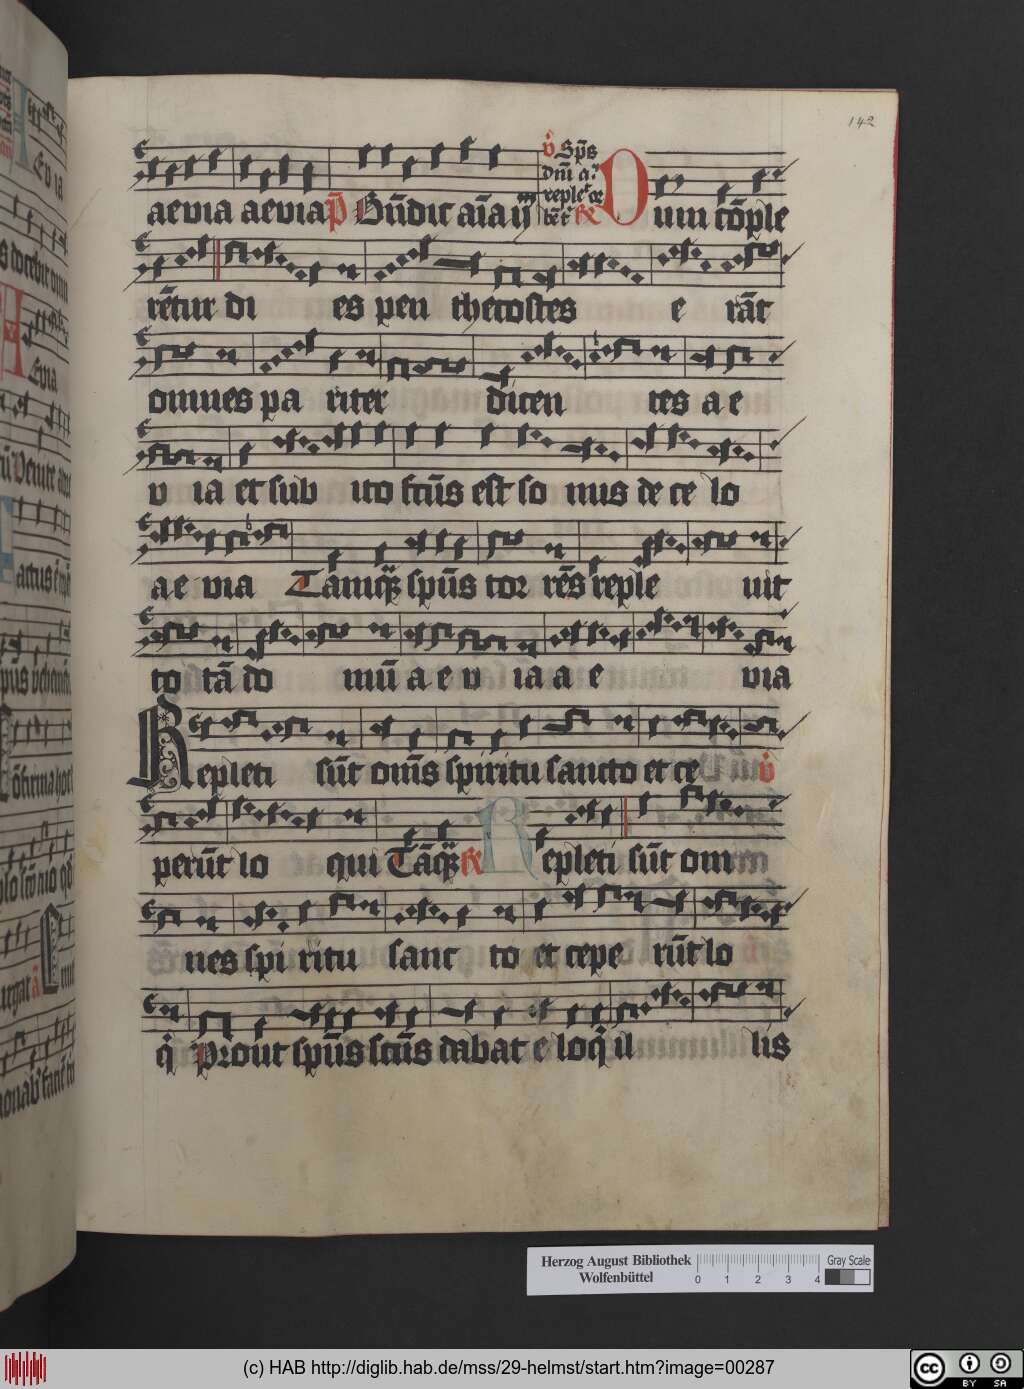 142
aevia aevia p̄ Bn̄dic aīa ij
v̇ Sp̄s
dn̄i a
replet or
R Dum cōple
rētur di es pen thecostes e rāt
omnes pa riter dicen tes a e
v ia et sub ito fctūs est so nus de ce lo
a e via Tāmq̄ spūs tor rēs reple uit
to tā do mū a e v ia a e via
Repleti sūt om̄s spiritu sancto et ce v̇
perūt lo qui Tāq̄ R Repleti sūt om
nes spi ritu sanc to et cepe rūt lo
qi Prout spūs sctūs dabat e loqi il lis
Herzog August Bibliothek
Wolfenbüttel
0 1 2 3 4
Gray Scale
(c) HAB http://diglib.hab.de/mss/29-helmst/start.htm?image=00287
cc BY SA